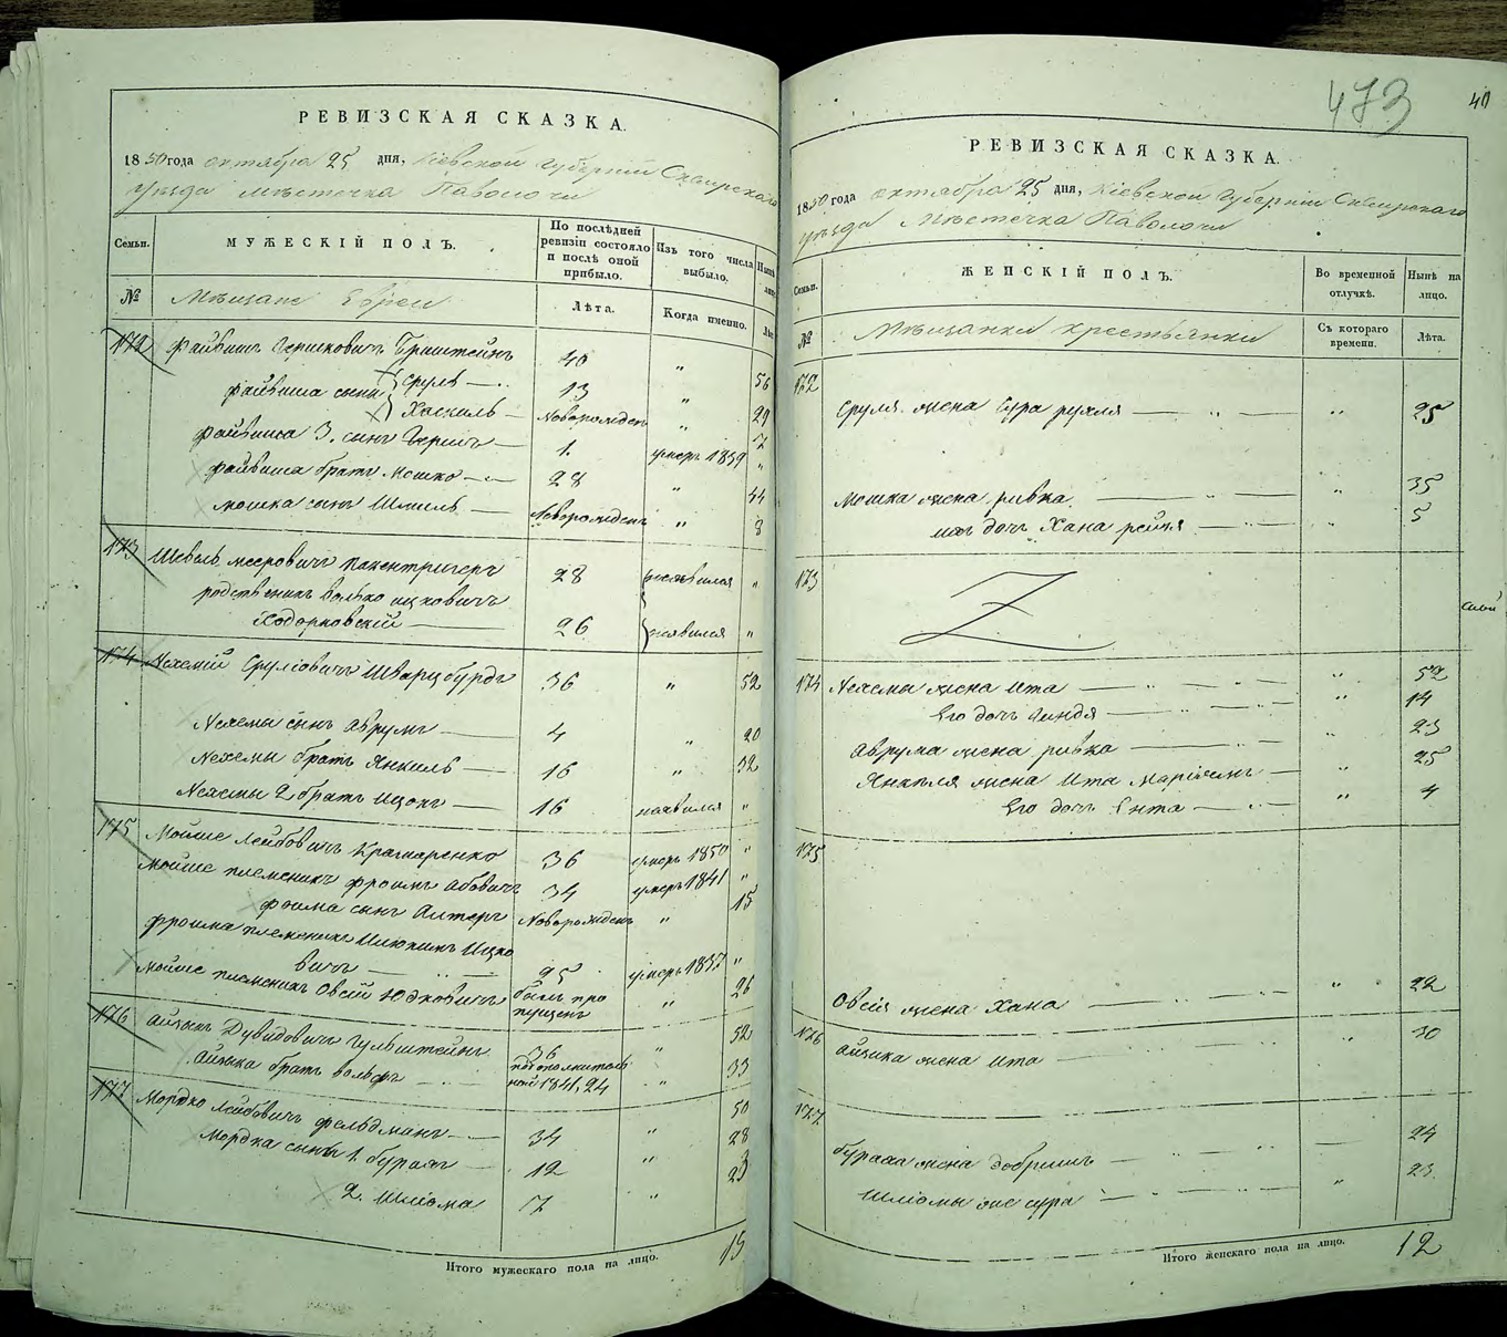 РЕВИЗСКАЯ СКАЗКА.
1850 года октября 25 дня, Кіевской Губерніи Сквирскаго
уѣзда мѣстечка Паволочи
Семьи.
МУЖЕСКІЙ ПОЛЪ.
По послѣдней ревизіи состояло и послѣ оной прибыло.
Изъ того числа выбыло.
Нынѣ
№
Мѣщане Евреи
Лѣта.
Когда именно.
172 Файвишъ Гершковичъ Бронштейнъ 40 " 56
Файвиша сыны Сруль 13 " 29
Хаскиль Новорожденъ " 17
Файвиша 3. сынъ Гершъ 1. умеръ 1839 "
Файвиша братъ Мошко 28 " 44
Мошка сынъ Шмиль Новорожденъ " 8
173 Шевель Мееровичъ 28 неявился "
родственикъ Волько Ицковичъ
Ходорковскій 26 неявился "
174 Нехемій Сруліовичъ Шварцбурдъ 36 " 52
Нехемы сынъ Аврумъ 4 " 20
Нехемы братъ Янкиль 16 " 32
Нехемы 2 братъ Ицокъ 16 неявился "
175 Мойше Лейбовичъ Крамаренко 36 умеръ 1850 "
Мойше племеникъ Фроимъ Абовичъ 34 умеръ 1841 "
Фроима сынъ Алтеръ Новорожденъ " 15
Фроима племеникъ Ицко
вичъ 25 умеръ 1837 "
Мойше племеникъ Овсій Юдковичъ былъ пропущенъ " 26
176 Айзыкъ Дувидовичъ Гульштейнъ 36 " 52
Айзыка братъ Вольфъ по дополнительной 1841, 24 " 33
177 Мордко Лейбовичъ Фельдманъ 34 " 50
Мордка сынъ 1. Бурахъ 12 " 28
2. Шліома 7 " 23
Итого мужескаго пола на лицо. 15
473
40
РЕВИЗСКАЯ СКАЗКА.
1850 года октября 25 дня, Кіевской Губерніи Сквирскаго
уѣзда Мѣстечка Паволочи
Семьи.
ЖЕНСКІЙ ПОЛЪ.
Во временной отлучкѣ.
Нынѣ на лицо.
№
Мѣщанки
Съ котораго времени.
Лѣта.
172
Сруля жена Сура Рухля " 25
Мошка жена Ривка " 35
доч Хана Рейзя " 5
173
174 Нехемы жена Ита " 52
Его дочь Гиндя " 14
Аврума жена Ривка " 23
Янкеля жена Ита Маріемъ " 25
Его дочь Ента " 4
175
Овсія жена Хана " 22
176 Айзика жена Ита " 30
177
Бураха жена Добришъ 24
Шліомы же Сура " 23.
Итого женскаго пола на лицо. 12